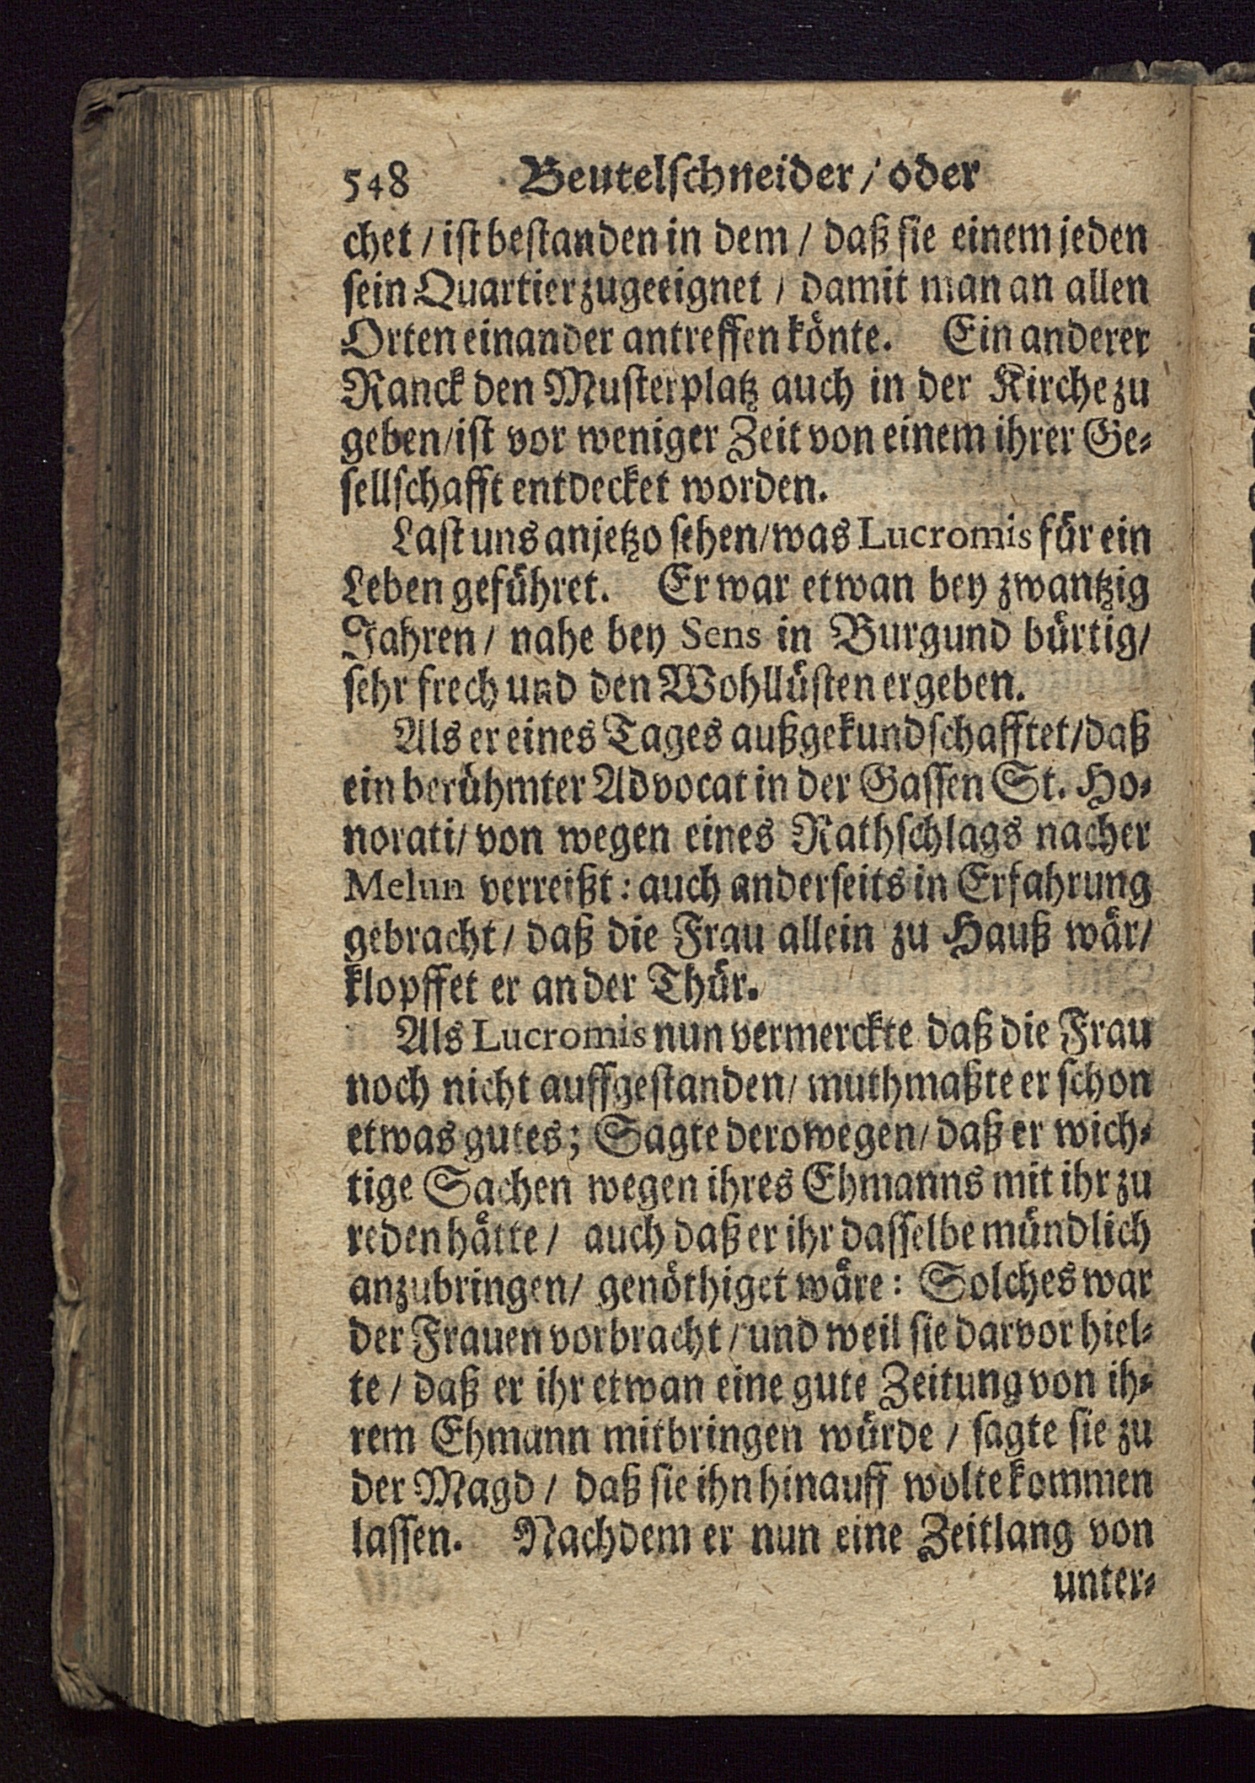 548 Beutelschneider / oder
chet / ist bestanden in dem / daß sie einem jeden
sein Quartier zugeeignet / damit man an allen
Orten einander antreffen könte. Ein anderer
Ranck den Musterplatz auch in der Kirche zu
geben / ist vor weniger Zeit von einem ihrer Ge-
sellschafft entdecket worden.
Last uns anjetzo sehen / was Lucromis für ein
Leben geführet. Er war etwan bey zwantzig
Jahren / nahe bey Sens in Burgund bürtig /
sehr frech und den Wohllüsten ergeben.
Als er eines Tages außgekundschafftet / daß
ein berühmter Advocat in der Gassen St. Ho-
norati / von wegen eines Rathschlags nacher
Melun verreißt : auch anderseits in Erfahrung
gebracht / daß die Frau allein zu Hauß wär /
klopffet er an der Thür.
Als Lucromis nun vermerckte daß die Frau
noch nicht auffgestanden / muthmaßte er schon
etwas gutes; Sagte derowegen / daß er wich-
tige Sachen wegen ihres Ehmanns mit ihr zu
reden hätte / auch daß er ihr dasselbe mündlich
anzubringen / genöthiget wäre : Solches war
der Frauen vorbracht / und weil sie darvor hiel-
te / daß er ihr etwan eine gute Zeitung von ih-
rem Ehmann mitbringen würde / sagte sie zu
der Magd / daß sie ihn hinauff wolte kommen
lassen. Nachdem er nun eine Zeitlang von
unter-